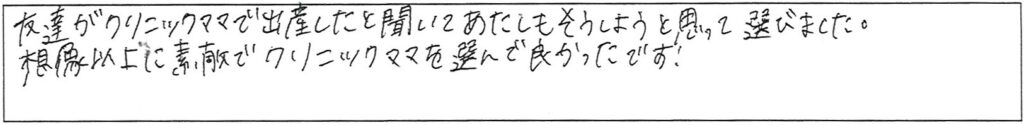 友達がクリニックママで出産したと聞いてあたしもそうしようと思って選びました。
想像以上に素敵でクリニックママを選んで良かったです!